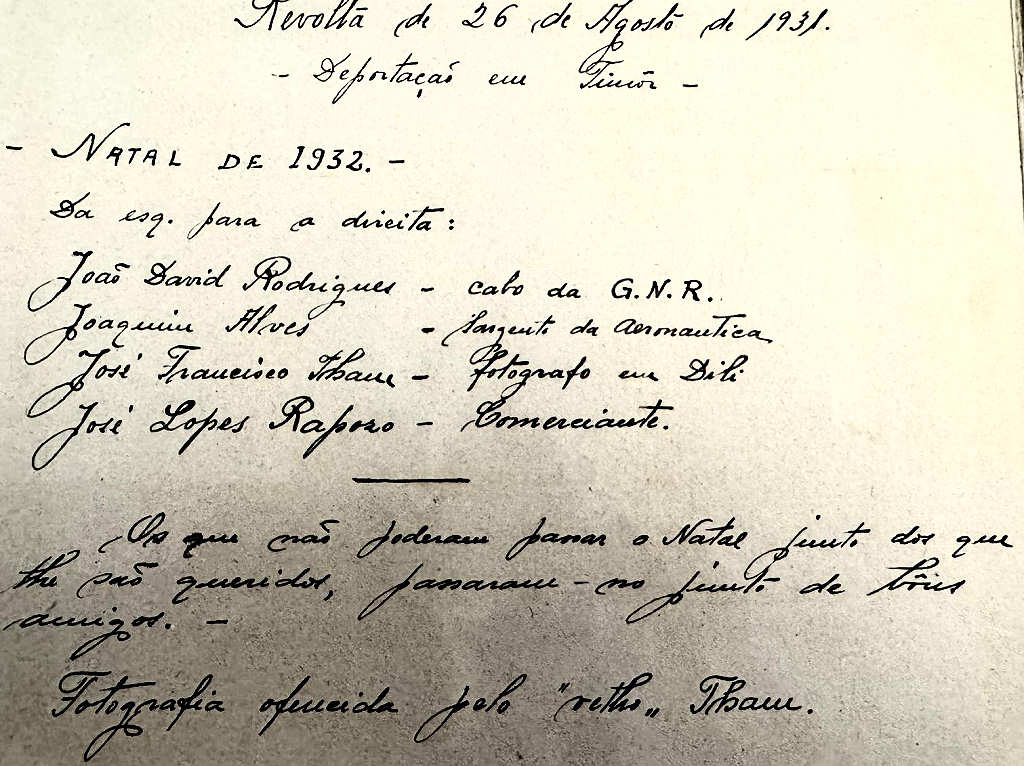 Revolta de 26 de Agostõ de 1931.
- Deportação em Timôr -
- NATAL DE 1932. -
Da esq. para a direita :
João David Rodrigues - cabo da G.N.R.
Joaquim Alves - sargento da aeronautica
José Francisco Tham - fotografo em Dili
José Lopes Rapozo - Comerciante.
Os que não poderam passar o Natal junto dos que
lhe são queridos, passaram-no junto de bôns
amigos. -
Fotografia oferecida pelo "velho„ Tham.